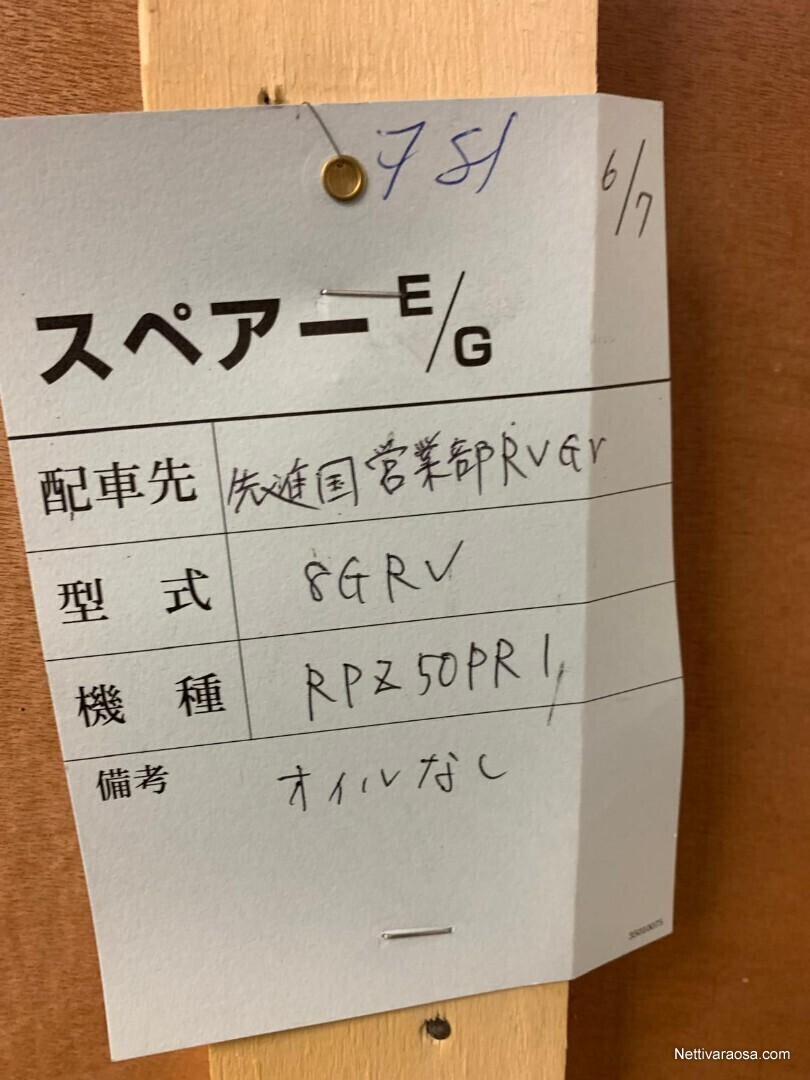 781
6/7
スペアーE/G
配車先 先進国営業部RVGr
型式 8GRV
機種 RPZ50PR1
備考 オイルなし
35010075
Nettivaraosa.com